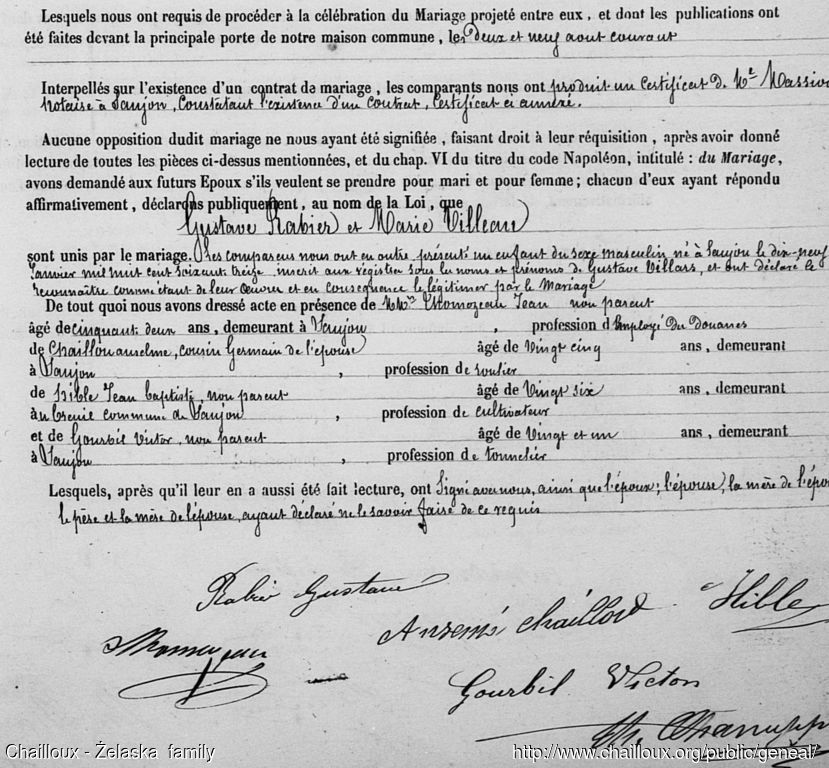 Lesquels nous ont requis de procéder à la célébration du Mariage projeté entre eux, et dont les publications ont
été faites devant la principale porte de notre maison commune, les deux et neuf aout courant
Interpellés sur l'existence d'un contrat de mariage, les comparants nous ont produit un certificat de Me
Notaire à Saujon, constatant l'existence d'un contrat, certificat ci annexé.
Aucune opposition dudit mariage ne nous ayant été signifiée, faisant droit à leur réquisition, après avoir donné
lecture de toutes les pièces ci-dessus mentionnées, et du chap. VI du titre du code Napoléon, intitulé : du Mariage,
avons demandé aux futurs Epoux s'ils veulent se prendre pour mari et pour femme; chacun d'eux ayant répondu
affirmativement, déclarons publiquement, au nom de la Loi, que
Gustave Rabier et Marie Villeau
sont unis par le mariage. Les comparens nous ont en outre présenté un enfant du sexe masculin né à Saujon le dix-neuf
Janvier mil huit cent soixante treize inscrit aux registres sous les noms et prénoms de Gustave Villars, et ont déclaré le
reconnaître comme étant de leur œuvre et en conséquence le légitimer par le Mariage
De tout quoi nous avons dressé acte en présence de Thomozeau Jean non parent
âgé de cinquante deux ans, demeurant à Saujon, profession d'Employé des Douanes
de Chaillou anselme, cousin Germain de l'épouse âgé de Vingt cinq ans, demeurant
à Saujon, profession de roulier
de Hible Jean baptiste, non parent âgé de Vingt six ans, demeurant
à breuil commune de Saujon, profession de cultivateur
et de Gourbil Victor, non parent âgé de Vingt et un ans, demeurant
à Saujon, profession de tonnelier
Lesquels, après qu'il leur en a aussi été fait lecture, ont Signé avec nous, ainsi que l'époux; l'épouse, la mère de l'épou
le père et la mère de l'épouse, ayant déclaré ne le savoir faire de ce requis
Rabier Gustave
Hible
Anselme Chaillou
Thomozeau
Gourbil Victor
Chailloux - Želaska family
http://www.chailloux.org/public/geneal/